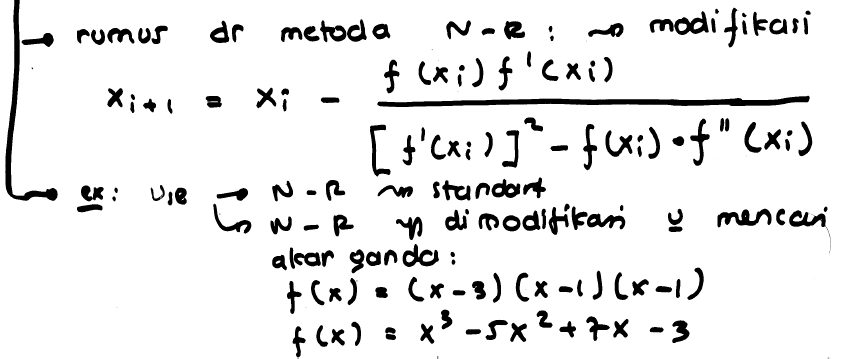 → rumus dr metoda N-R : ~> modifikasi
x_{i+1} = x_i - \frac{f(x_i) f'(x_i)}{[f'(x_i)]^2 - f(x_i) \cdot f''(x_i)}
→ ex: → N-R ~> standart
↳ N-R yg dimodifikasi u mencari
akar ganda :
f(x) = (x-3)(x-1)(x-1)
f(x) = x^3 - 5x^2 + 7x - 3